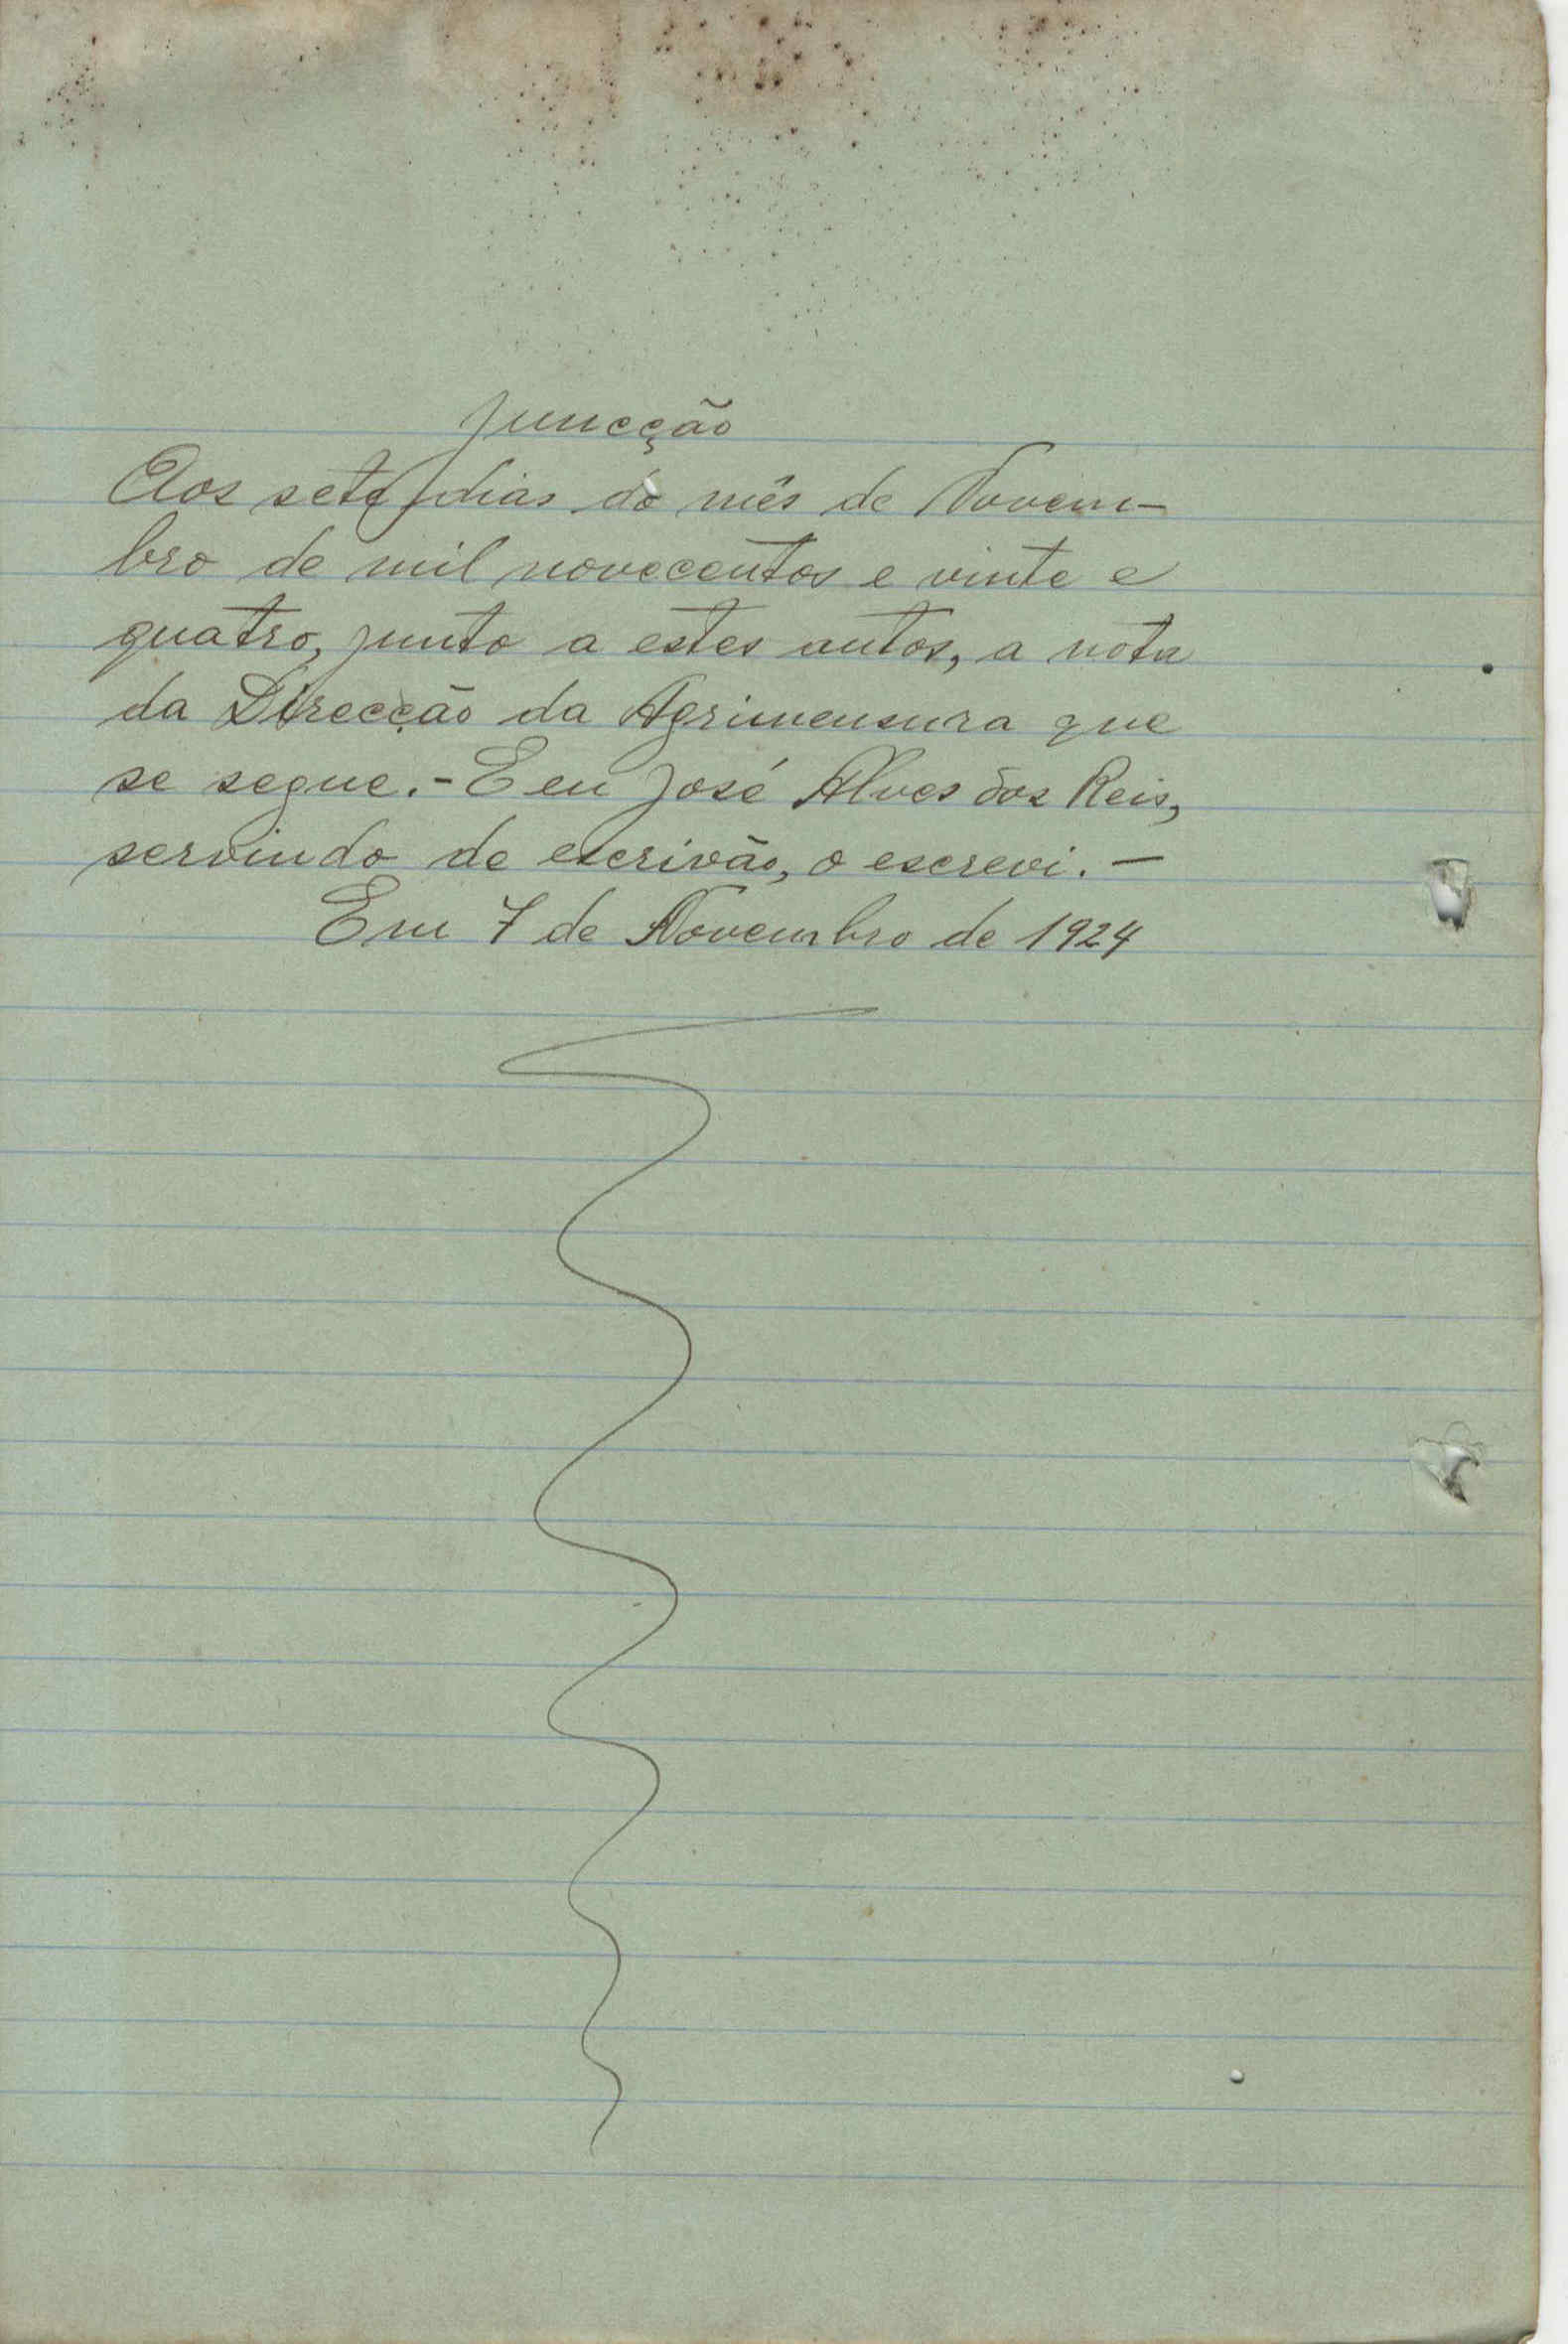 Juncção
Aos sete dias do mês de Novem-
bro de mil novecentos e vinte e
quatro, junto a estes autos, a nota
da Direcção da Agrimensura que
se segue.- E eu José Alves dos Reis,
servindo de escrivão, o escrevi. —
Em 7 de Novembro de 1924